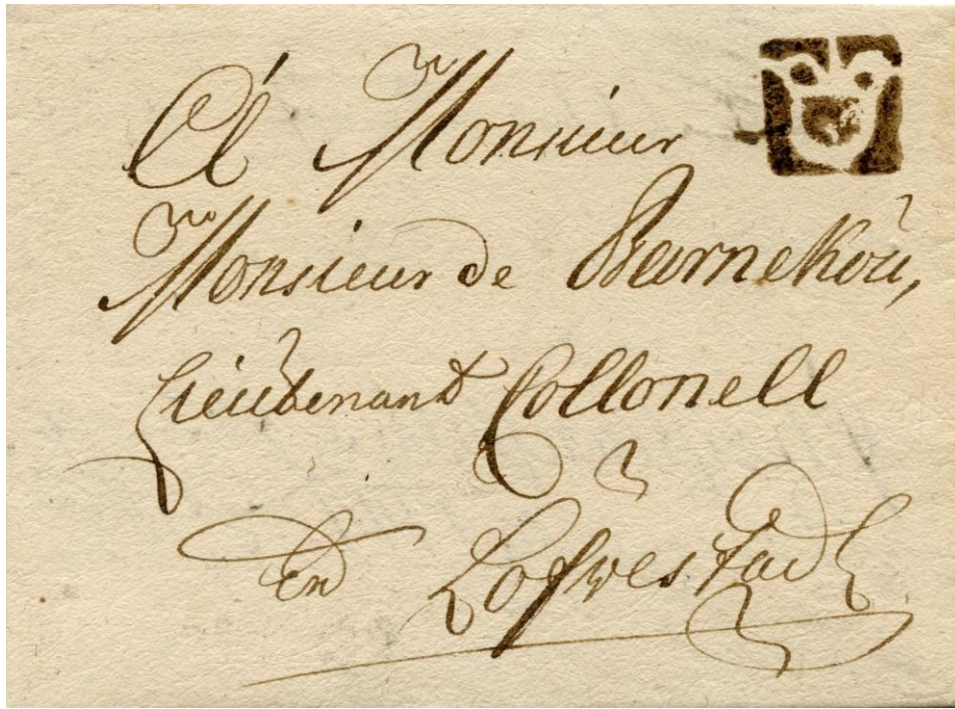 A Monsieur
Monsieur de Barnekoŭ,
Lieŭtenant Collonell
en Löfvestad